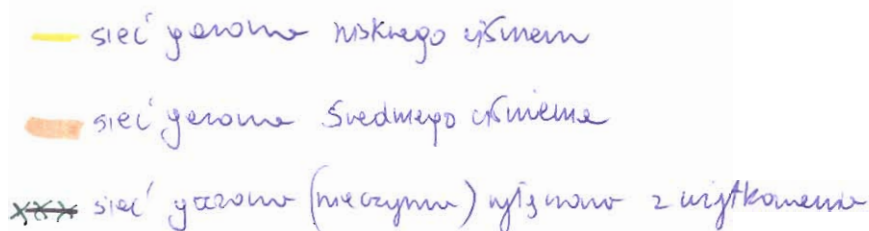 sieć gazowa niskiego ciśnienia
sieć gazowa średniego ciśnienia
sieć gazowa (nieczynna) wyłączona z użytkowania